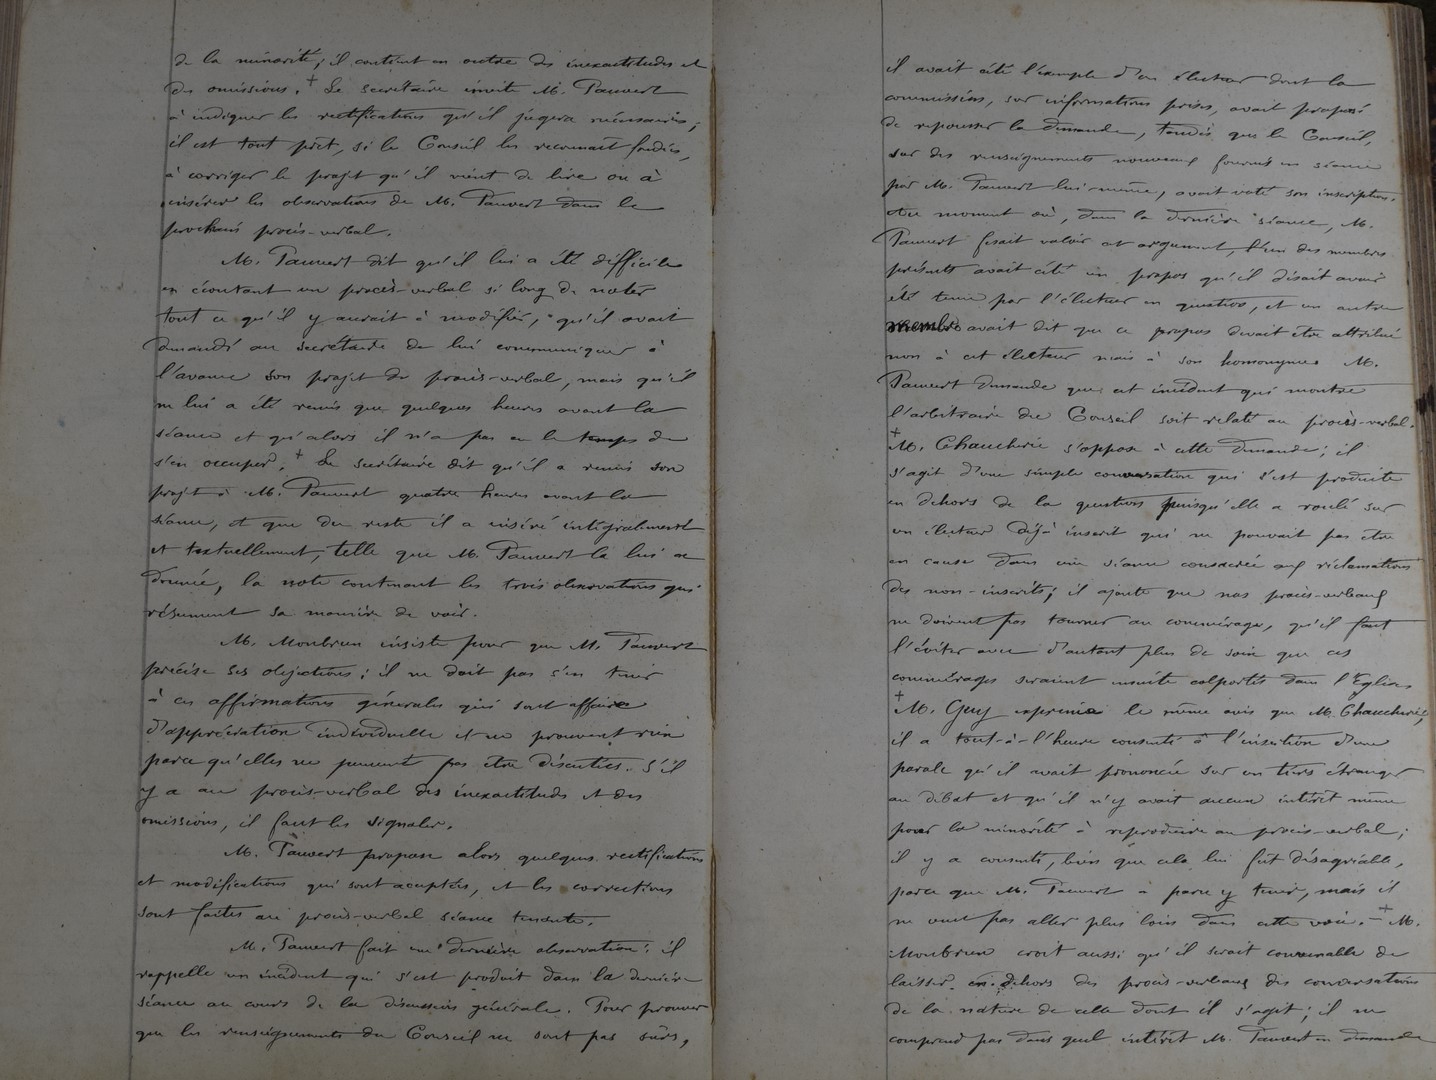 de la minorité; il contient en outre des inexactitudes et
des omissions. + Le secrétaire invite M. Pauvert
à indiquer les rectifications qu'il jugera nécessaires;
il est tout prêt, si le Conseil les reconnait fondées,
à corriger le projet qu'il vient de lire ou à
insérer les observations de M. Pauvert dans le
prochain procès-verbal.
M. Pauvert dit qu'il lui a été difficile
en écoutant un procès-verbal si long de noter
tout ce qu'il y aurait à modifier, qu'il avait
demandé au secrétaire de lui communiquer à
l'avance son projet de procès-verbal, mais qu'il
ne lui a été remis que quelques heures avant la
séance et qu'alors il n'a pas eu le temps de
s'en occuper. + Le secrétaire dit qu'il a remis son
projet à M. Pauvert quatre heures avant la
séance, et que du reste il a inséré intégralement
et textuellement, telle que M. Pauvert la lui a
donnée, la note contenant les trois observations qui
résument sa manière de voir.
M. Monbrun insiste pour que M. Pauvert
précise ses objections; il ne doit pas s'en tenir
à ces affirmations générales qui sont affaire
d'appréciation individuelle et ne prouvent rien
parce qu'elles ne peuvent pas être discutées. S'il
y a au procès-verbal des inexactitudes et des
omissions, il faut les signaler.
M. Pauvert propose alors quelques rectifications
et modifications qui sont acceptées, et les corrections
sont faites au procès-verbal séance tenante.
M. Pauvert fait une dernière observation: il
rappelle un incident qui s'est produit dans la dernière
séance au cours de la discussion générale. Pour prouver
que les renseignements du Conseil ne sont pas sûrs,
il avait cité l'exemple d'un électeur dont la
commission, sur informations prises, avait proposé
de repousser la demande, tandis que le Conseil,
sur des renseignements nouveaux fournis en séance
par M. Pauvert lui-même, avait voté son inscription.
Au moment où, dans la dernière séance, M.
Pauvert fesait valoir cet argument, l'un des membres
présents avait cité un propos qu'il disait avoir
été tenu par l'électeur en question, et un autre
membre avait dit que ce propos devait être attribué
non à cet électeur mais à son homonyme. M.
Pauvert demande que cet incident qui montre
l'arbitraire du Conseil soit relaté au procès-verbal.
+ M. Chaucherie s'oppose à cette demande; il
s'agit d'une simple conversation qui s'est produite
en dehors de la question puisqu'elle a roulé sur
un électeur déjà inscrit qui ne pouvait pas être
en cause dans une séance consacrée aux réclamations
des non-inscrits; il ajoute que nos procès-verbaux
ne doivent pas tourner au commérage, qu'il faut
l'éviter avec d'autant plus de soin que ces
commérages seraient ensuite colportés dans l'Eglise
+ M. Guy exprime le même avis que M. Chaucherie,
il a tout-à-l'heure consenti à l'insertion d'une
parole qu'il avait prononcée sur un tiers étranger
au débat et qu'il n'y avait aucun intérêt même
pour la minorité à reproduire au procès-verbal;
il y a consenti, bien que cela lui fut désagréable,
parce que M. Pauvert a paru y tenir, mais il
ne veut pas aller plus loin dans cette voie. + M.
Monbrun croit aussi qu'il serait convenable de
laisser en dehors des procès-verbaux des conversations
de la nature de celle dont il s'agit; il ne
comprend pas dans quel intérêt M. Pauvert en demande